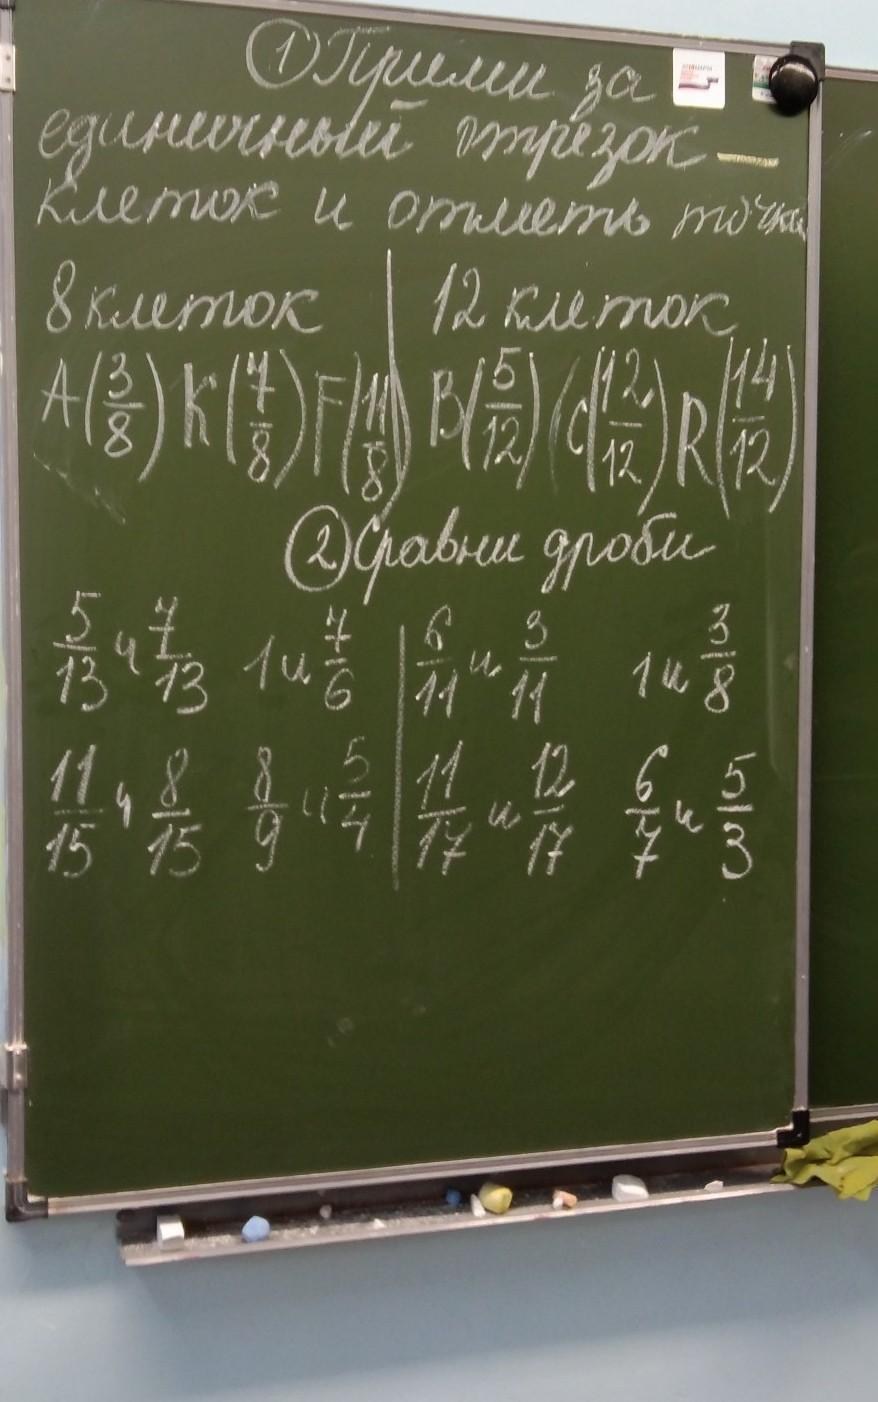 ① Прими за
единичный отрезок —
клеток и отметь точки
8 клеток | 12 клеток
A(3/8) K(7/8) F(11/8) | B(5/12) C(12/12) R(14/12)
② Сравни дроби
5/13 и 7/13 1 и 7/6 | 6/11 и 3/11 1 и 3/8
11/15 и 8/15 8/9 и 5/4 | 11/17 и 12/17 6/7 и 5/3